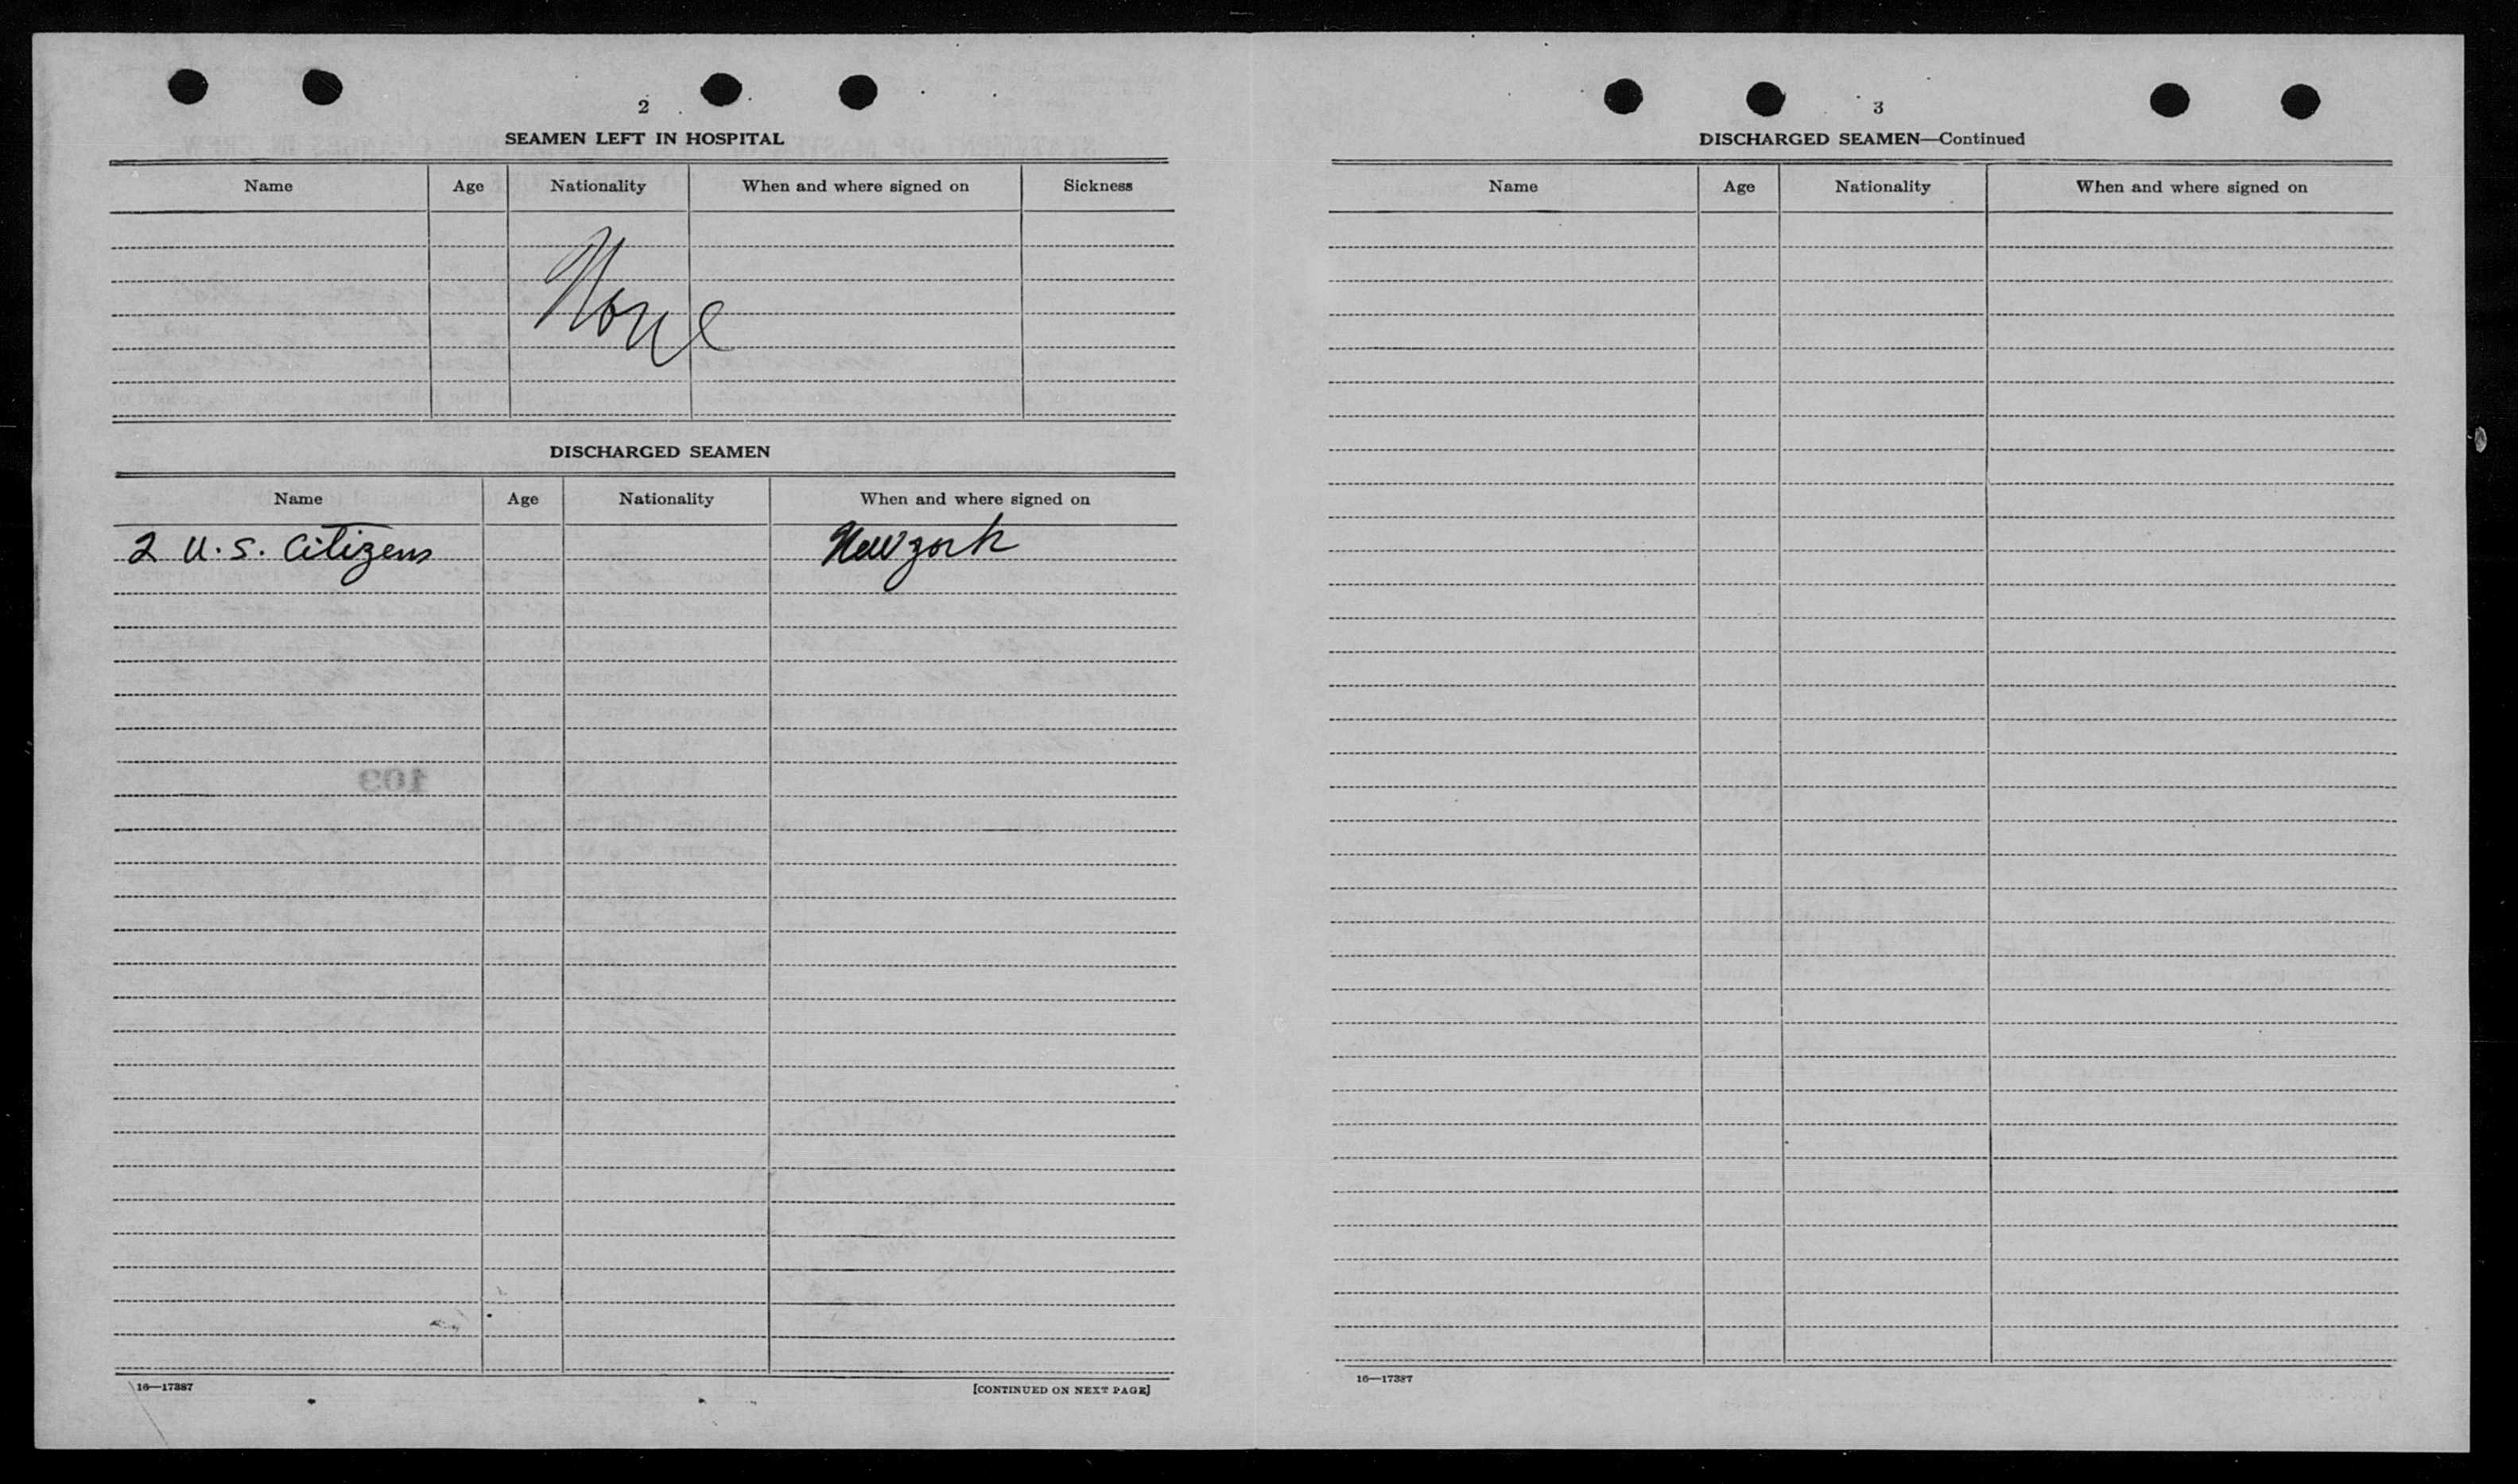 2
SEAMEN LEFT IN HOSPITAL
Name Age Nationality When and where signed on Sickness
None
DISCHARGED SEAMEN
Name Age Nationality When and where signed on
2 U.S. Citizens New york
103
16—17387 [CONTINUED ON NEXT PAGE]
3
DISCHARGED SEAMEN—Continued
Name Age Nationality When and where signed on
16—17387